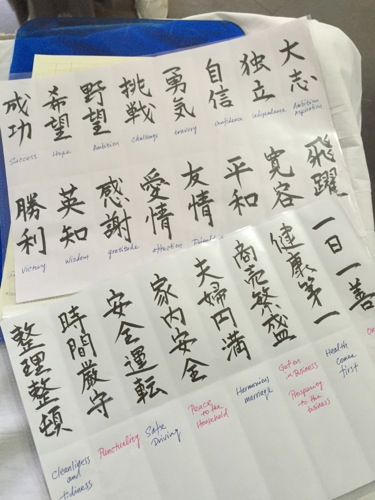 大志
独立
自信
勇気
挑戦
野望
希望
成功
Ambition
Aspiration
Independence
Confidence
bravery
challenge
Ambition
Hope
Success
飛躍
寛容
平和
友情
愛情
感謝
英知
勝利
affection
gratitude
wisdom
Victory
一日一善
健康第一
商売繁盛
夫婦円満
家内安全
安全運転
時間厳守
整理整頓
Health
comes
first
Get on
in Business
Prosperity
to the
business
Harmonious
marriage
Peace
to the
Household
Safe
Driving
Punctuality
Cleanliness
and
tidiness